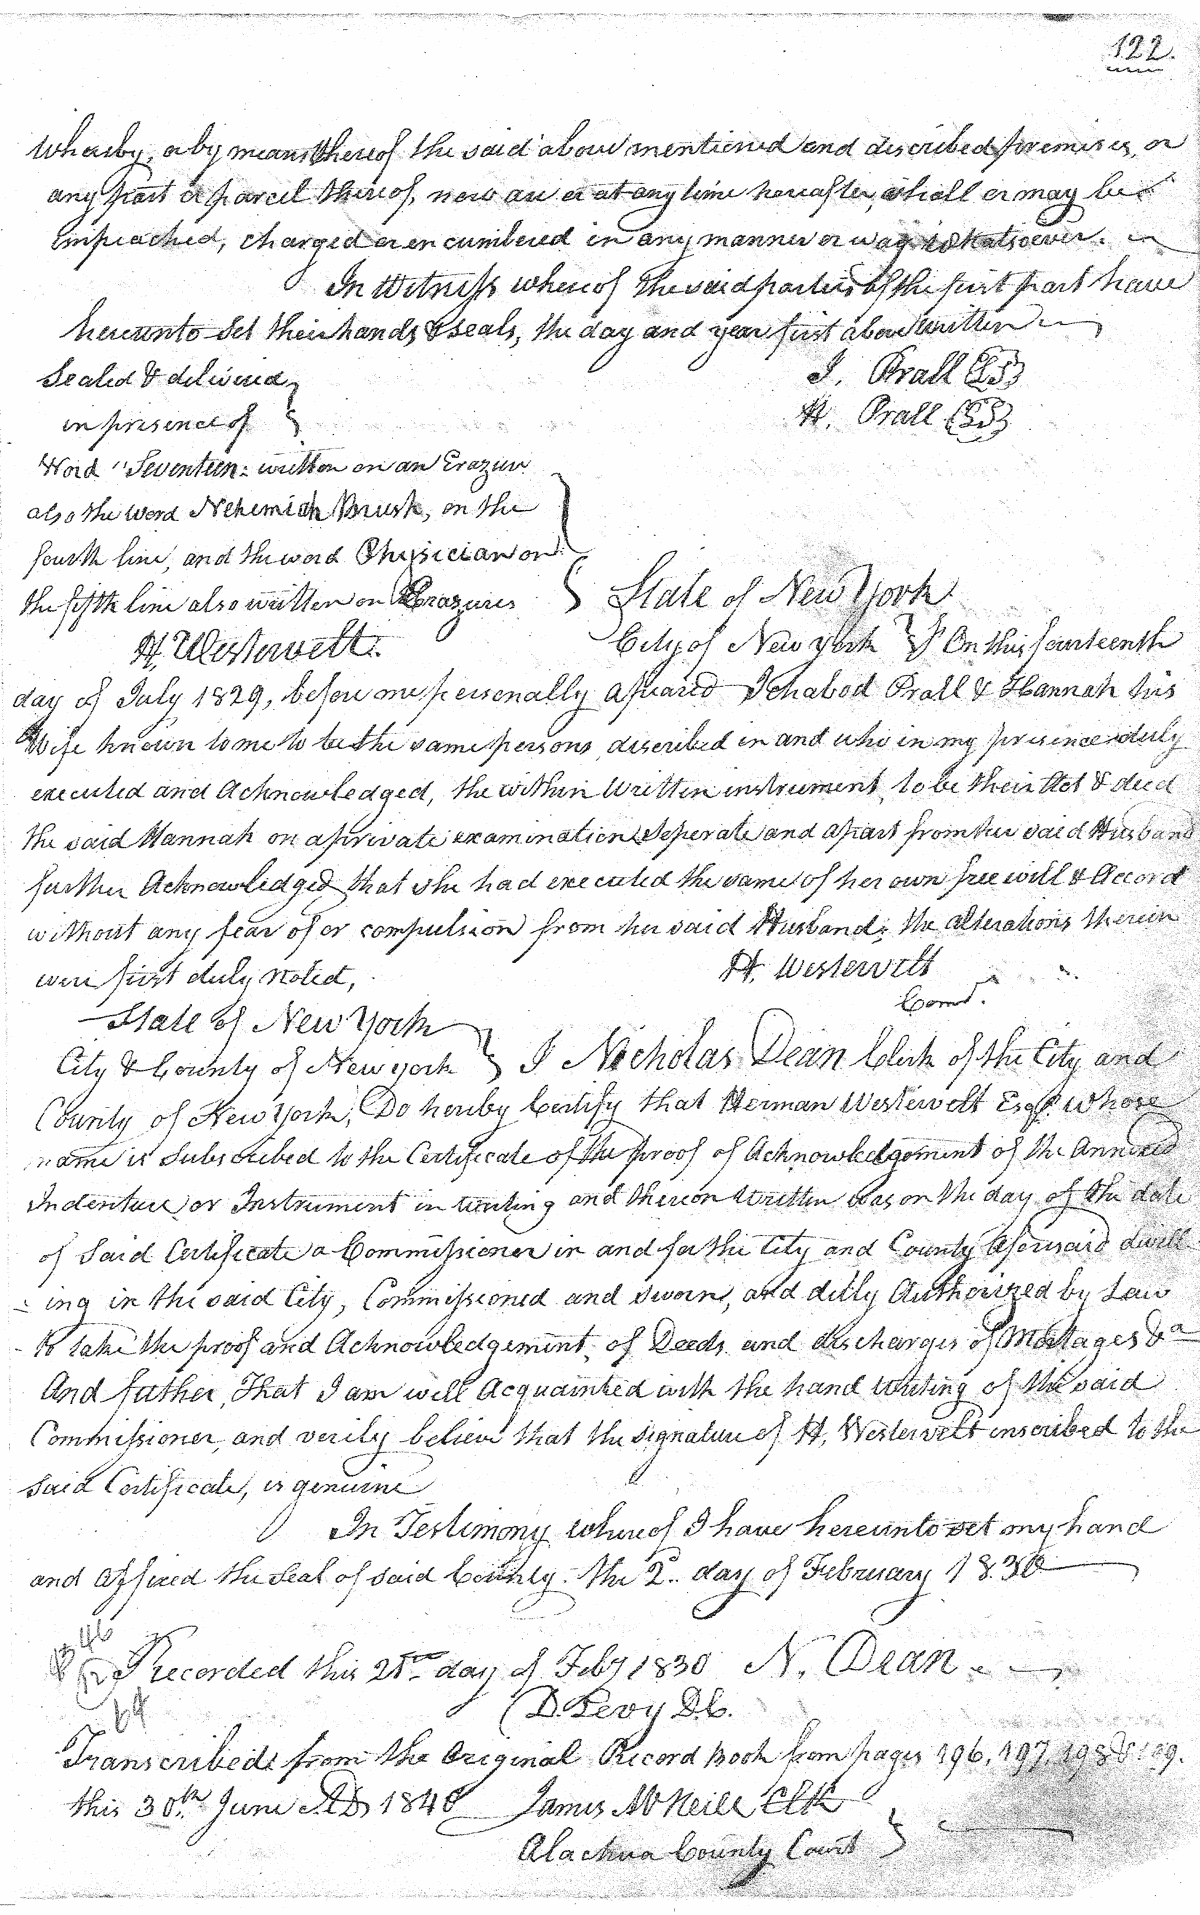 122.
whereby, or by means thereof the said above mentioned and discribed premises, or
any part or parcel thereof, now are or at any time hereafter, shall or may be
impeached, charged or encumbered in any manner or way whatsoever.
In Witness whereof the said parties of the first part have
hereunto set their hands & seals, the day and year first above written
Sealed & delivered
in presence of
I. Prall (LS)
H. Prall (LS)
Word "Seventeen" written on an Erazure
also the word Nehemiah Brush, on the
fourth line, and the word Physician on
the fifth line also written on Erazures
H. Westervelt.
State of New York
City of New York } On this fourteenth
day of July 1829, before me personally apeared Ichabod Prall & Hannah his
Wife known to me to be the same persons, discribed in and who in my presence duly
executed and Acknowledged, the within Written instrument, to be their Act & deed
the said Hannah on a private examination Seperate and apart from her said Husband
further Acknowledged that she had executed the same of her own free will & Accord
without any fear of or compulsion from her said Husband; the alterations therein
were first duly noted,
H. Westervelt
Comr.
State of New York
City & County of New York } I Nicholas Dean Clerk of the City and
County of New York, Do hereby Certify that Herman Westervelt Esqr. whose
name is Subscribed to the Certificate of the proof of Acknowledgement of the Annexed
Indenture or Instrument in writing and thereon Written was on the day of the date
of Said Certificate a Commissioner in and for the City and County aforesaid dwell
-ing in the said City, Commissioned and sworn, and dully Authorized by Law
to take the proof and Acknowledgement, of Deeds and discharges of Mortages &a
And futher, That I am well Acquainted with the hand writing of the said
Commissioner, and verily believe that the signature of H. Westervelt inscribed to the
said Certificate, is genuine
In Testimony whereof I have hereunto set my hand
and affixed the Seal of said County. the 2d. day of February 1830
46
12
64
Recorded this 21st day of Feby 1830 N. Dean
D. Levy D.C.
Transcribed from the Original Record Book from pages 196, 197, 198 & 199.
this 30th June AD 1840 James McNeill Clk
Alachua County Court